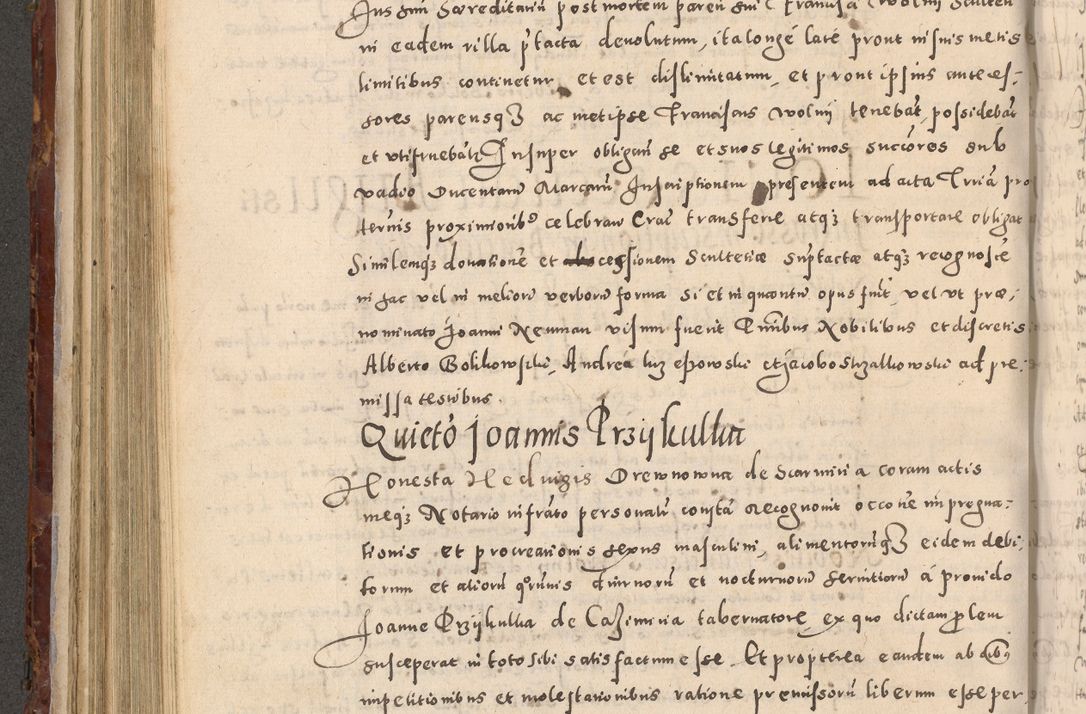 Jus suū hæreditariū post mortem paren sui Francisci Wolnij Sculteti
in eadem villa p̄tacta devolutum, ita longè latè prout in suis metis
limitibus continetur et est dislimitatum, et prout ipsius anteces,
sores parensqȝ ac metipse Franciscus Wolnij tenebāt, possidebāt
et utifruebāt Insuper obligaū se et suos legitimos succōres sub
vadio Ducentarū Marcarū Inscriptionem presentem ad acta Trrīa pro
ternis proximioribꝰ celebraū Erāt transferre atqȝ transportare obligat
Similemqȝ donationē et cessionem Scultetiæ suptactæ atqȝ recognoscē
in hac vel in meliorū verborū forma si et in quantū opus fūit, vel ut præ,
nominato Joanni Neuman visum fuerit Omībus Nobilibus et discretis
Alberto Bolikowski, Andrea et Jacobo Strzalkowski ad pre,
missa testibus.
Quietō Joannis Przijkullia
Honesta Hedvigis Drewnowna de Scarmina coram actis
meqȝ Notario infrāto personalr̄ constā Recognovit occōne impregna:
tionis et procreationis sexus masculini, alimentorūqȝ eidem debi,
torum et aliorū qorumvis diurnorū et nocturnorū servitiorū à provido
Joanne Przijkullia de Casimiria tabernatore, ex quo dictam prolem
susceperat in toto sibi satisfactum esse. Et propterea eundem ab oībꝰ
impetitionibus et molestationibus ratione premissorū liberum esse per